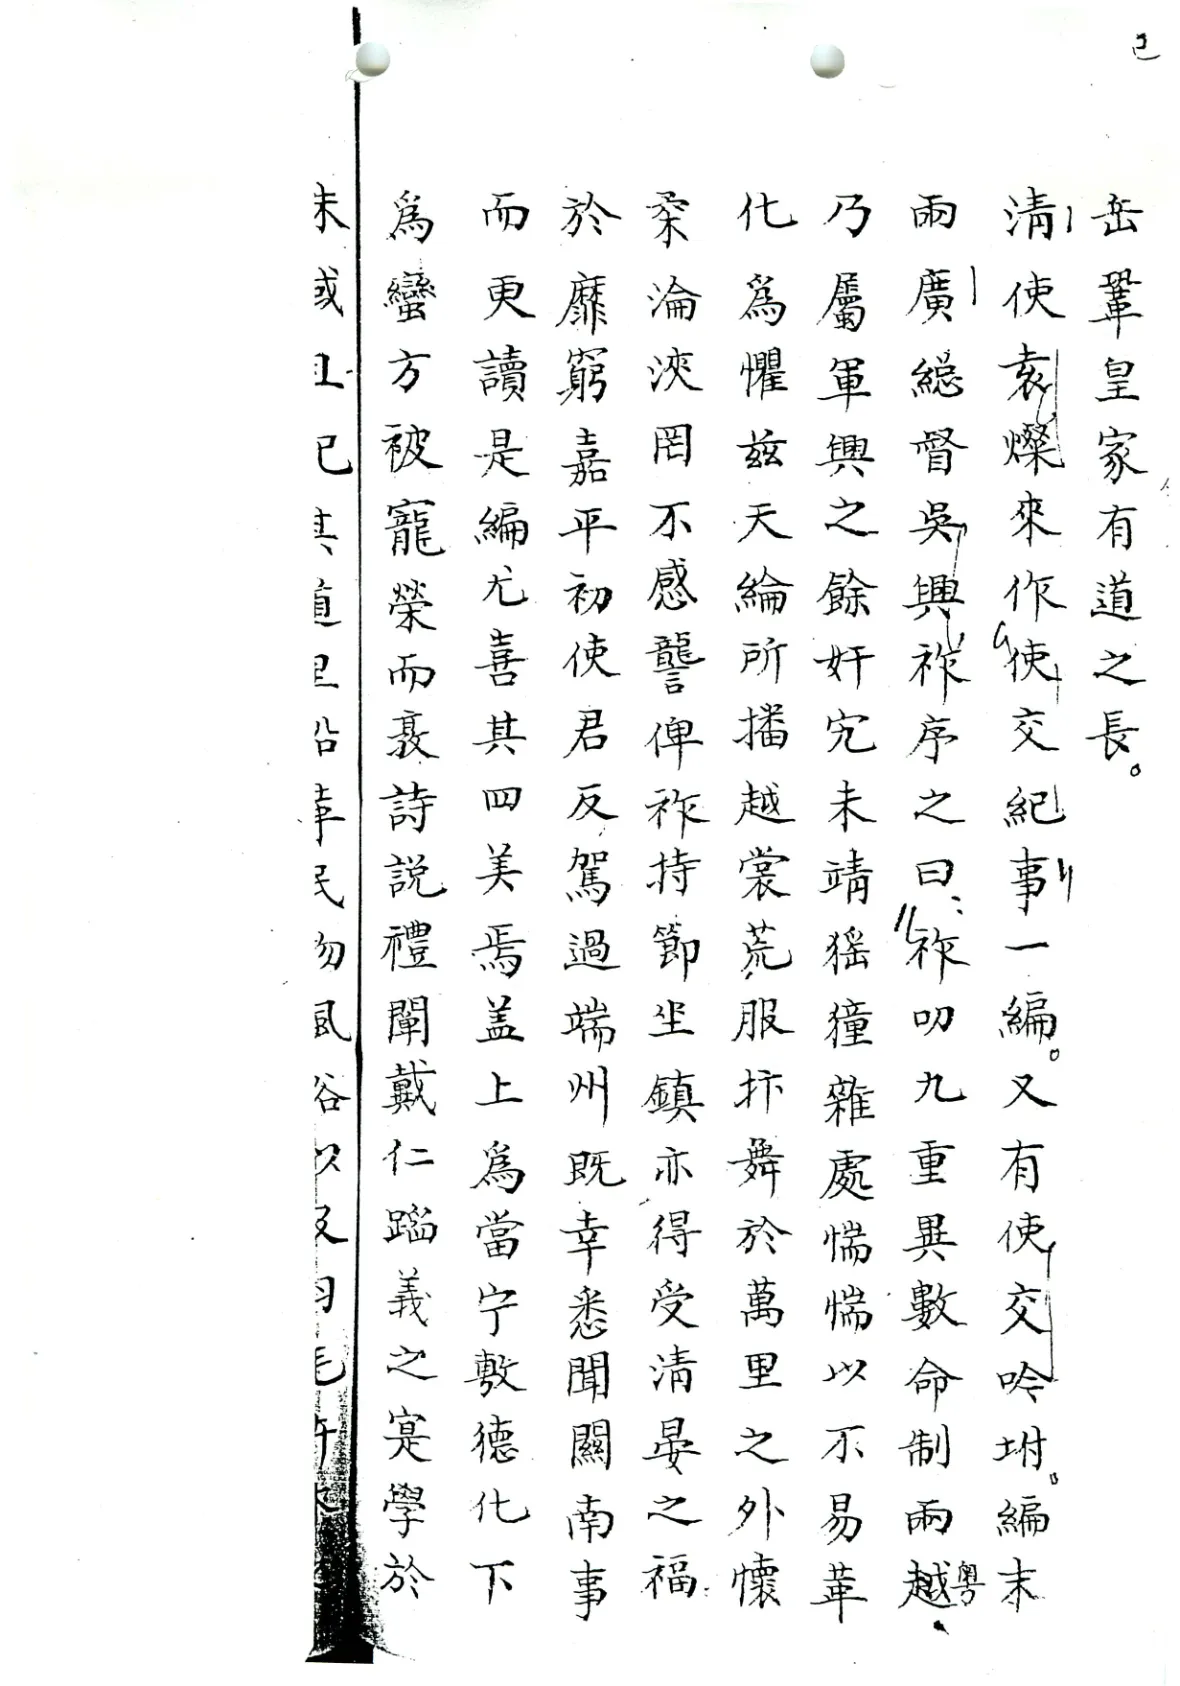 岳鞏皇家有道之長。
清使袁燦來作使交紀事一編。又有使交吟坿。編末
兩廣総督吳興祚序之曰祚叨九重異數命制兩越粵
乃屬軍興之餘奸宄未靖猺獞雜處惴惴以不易革
化爲懼兹天綸所播越裳荒服抃舞於萬里之外懷
柔淪浹罔不感讋俾祚持節坐鎮亦得受清晏之福
於靡窮嘉平初使君反駕過端州既幸悉聞關南事
而更讀是編尤喜其四美焉盖上爲當宁敷德化下
爲蠻方被寵榮而裒詩説禮闡戴仁蹈義之寔學於